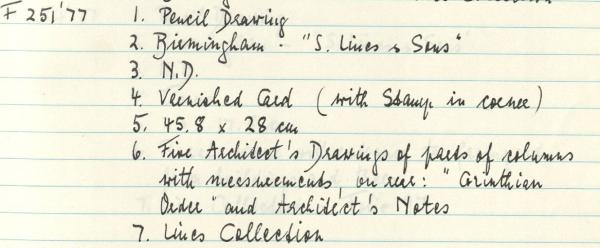 F 251'77 1. Pencil Drawing
2. Birmingham - "S. Lines & Sons"
3. N.D.
4. Varnished Card (with Stamp in corner)
5. 45.8 x 28 cm
6. Fine Architect's Drawings of parts of columns
with measurements, on rear: "Corinthian
Order" and Architect's Notes
7. Lines Collection